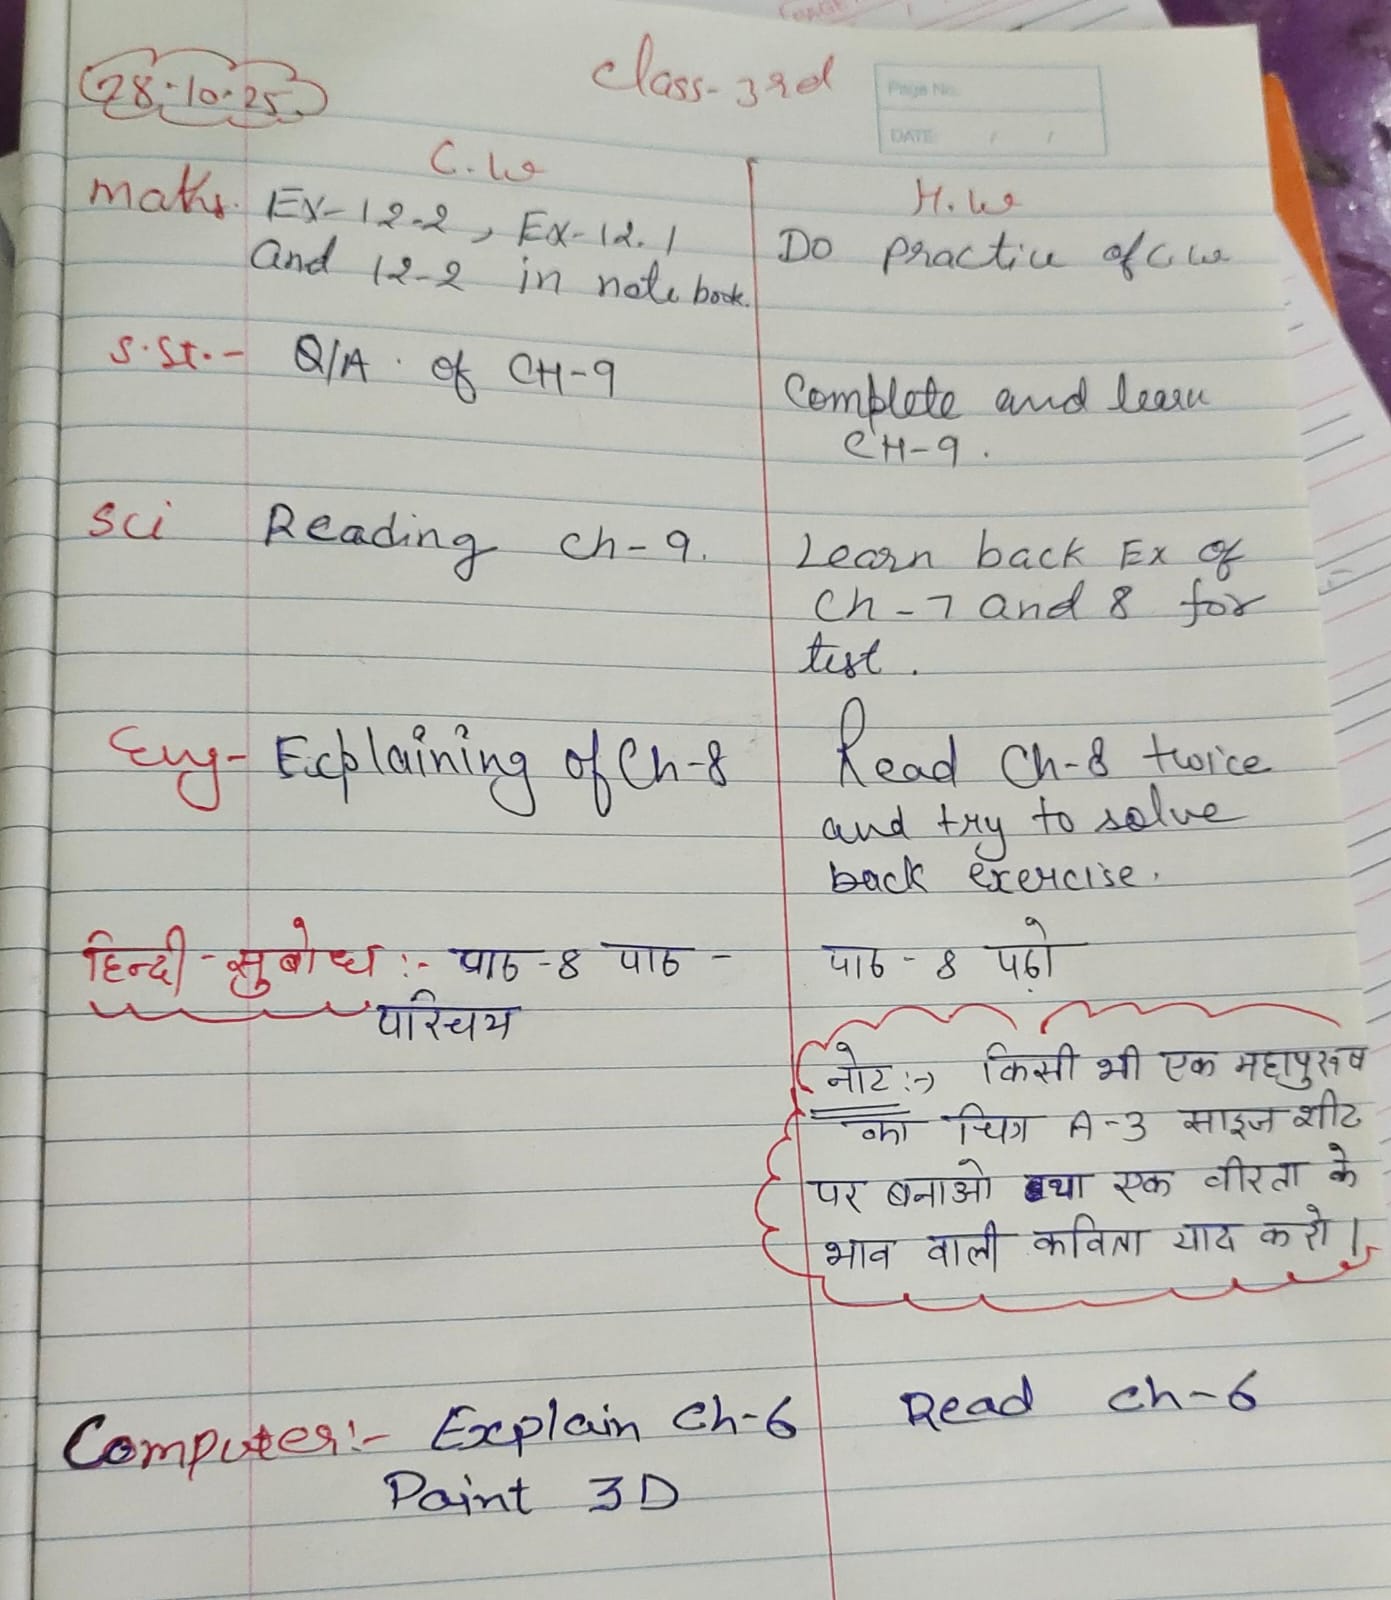 28.10.25
Class-3rd
Page No.
DATE / /
C.W
H.W
Maths. Ex-12-2, Ex-12.1
and 12-2 in note book.
Do practice of C.W
S.St.- Q/A. of CH-9
Complete and learn
CH-9.
Sci Reading ch-9.
Learn back Ex of
Ch-7 and 8 for
test.
Eng- Explaining of Ch-8
Read Ch-8 twice
and try to solve
back exercise.
हिन्दी - सुबोध :- पाठ -8 पाठ -
परिचय
पाठ - 8 पढ़ो
नोट :-> किसी भी एक महापुरुष
का चित्र A-3 साइज शीट
पर बनाओ तथा एक वीरता के
भाव वाली कविता याद करो।
Computer:- Explain Ch-6
Paint 3D
Read Ch-6